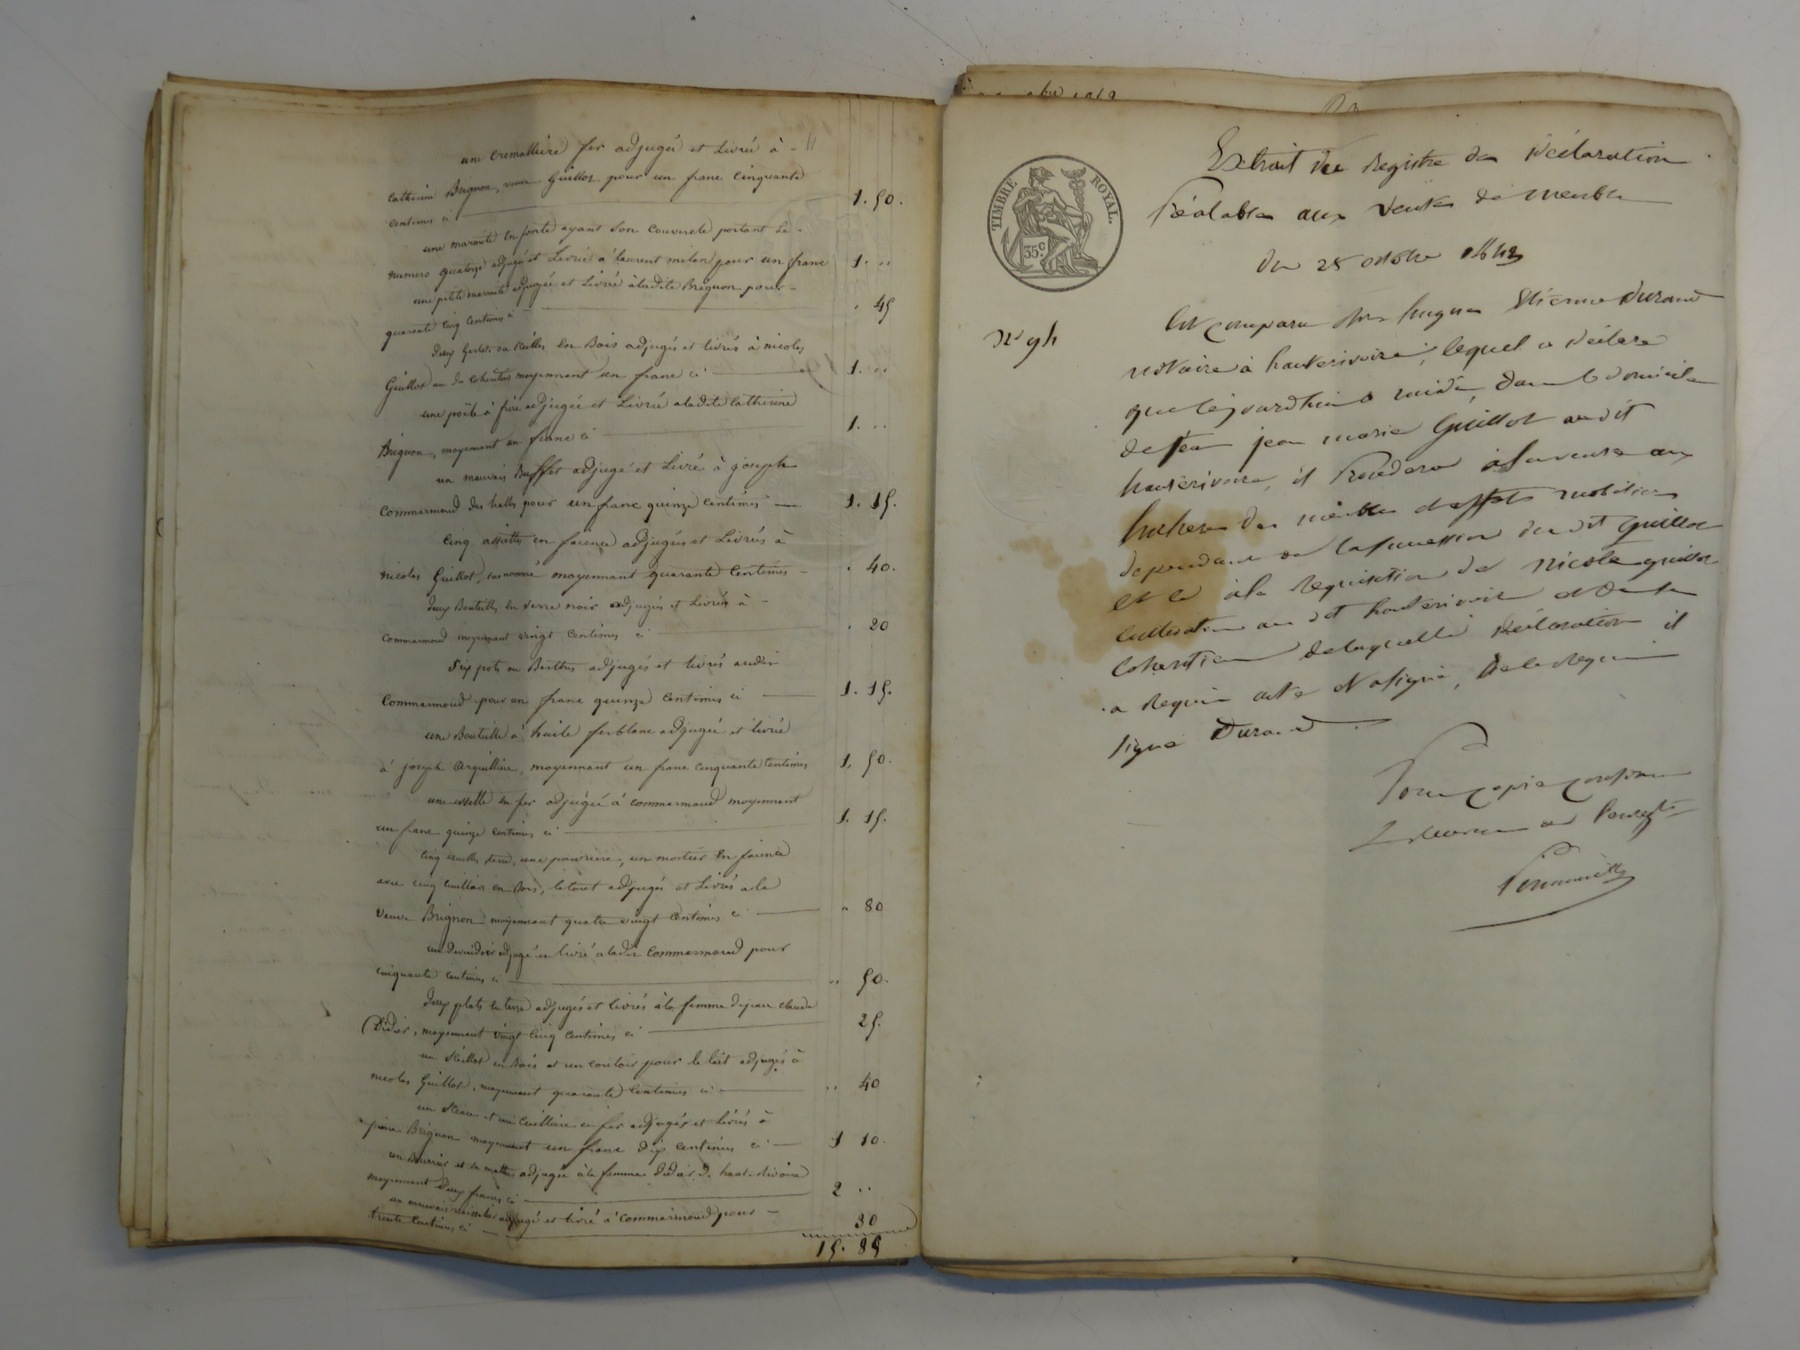 une cremalliere fer adjugée et Livrée à -
Catherine Brignon, veuve Guillot pour un franc Cinquante
Centimes ci 1. 50.
une marmite en fonte ayant son Couvercle portant Le -
numero quatorze adjugé et Livrée à laurent milan pour un franc 1. ..
une petite marmite adjugée et Livrée à ladite Brignon pour -
quarante cinq Centimes ci . 45
deux en Bois adjugés et livrés à nicolas
Guillot un des coheritiers moyennant un franc ci 1. ..
une poële à frire adjugée et Livrée aladite Catherine
Brignon, moyennant un franc ci 1. ..
un mauvais Buffet adjugé et Livré à joseph
Commarmond des halles pour un franc quinze centimes 1. 15.
Cinq assiettes en faience adjugées et Livrées à
nicolas Guillot, susnommé moyennant quarante Centimes - . 40.
deux Bouteilles en verre noir adjugées et Livrées à -
Commarmond moyennant vingt Centimes ci . 20
Six pots ou Berthes adjugés et livrés audit
Commarmond pour un franc quinze Centimes ci 1. 15.
une Bouteille à huile ferblanc adjugée et livrée
à joseph Arquillière, moyennant un franc cinquante Centimes 1. 50.
une en fer adjugée à Commarmond moyennant
un franc quinze Centimes ci 1. 15.
Cinq terre, une, un mortier En faience
avec cinq Cuillers en Bois, le tout adjugés et Livrés a la
Veuve Brignon moyennant quatre vingt Centimes ci . 80
un devidoir adjugé et livré audit Commarmond pour
cinquante centimes ci .. 50.
deux plats en terre adjugés et livrés à la femme de jean claude
Didier, moyennant vingt Cinq Centimes ci 25.
un en Bois et un couloir pour le lait adjugés à
nicolas Guillot, moyennant quarante Centimes ci .. 40
un et une Cuillière en fer adjugés et Livrés à
pierre Brignon moyennant un franc dix centimes ci 1 10.
un et sa adjugée à la femme Didier de haute rivoire
moyennant deux francs ci 2 ..
un mauvais adjugé et livré à Commarmond pour -
trente Centimes ci 30
15. 85
TIMBRE ROYAL.
35.c
Extrait du Registre des Déclarations
Préalables aux Ventes de Meubles
Du 25 octobre 1842
N° 94
Est Comparu Mre hugues Etienne Durand
notaire à hauterivoire, lequel a déclaré
que cejourdhui à midi, dans le domicile
de feu jean marie Guillot audit
hauterivoire, il Procedera à la vente aux
Encheres des meubles et effets mobiliers
dependant de la succession dudit Guillot
et ce à la requisition de Nicolas guillot
Cultivateur au dit hauterivoire et de ses
Coheritiers de laquelle déclaration il
a Requis acte et a signé, sur le Registre
signé Durand
Pour copie conforme
Le Receveur de l'enregt